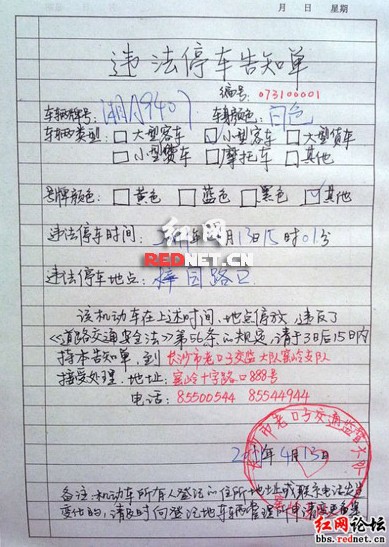 月 日 星期
违法停车告知单
编号:073100001
车辆牌号: 湘A9407 车身颜色: 白色
车辆类型: 大型客车 小型客车 大型货车
小型货车 摩托车 其他
号牌颜色: 黄色 蓝色 黑色 其他
违法停车时间: 月13日15时01分
违法停车地点: 梓园路口
该机动车在上述时间、地点停放,违反了
《道路交通安全法》第56条的规定,请于3日后15日内
持本告知单,到长沙市老口子交监大队窑岭支队
接受处理.地址:窑岭十字路口888号
电话: 85500544 85544944
年4月13日
备注:机动车所有人登记的住所地址或联系电话发生
变化的,请及时向登记地车辆管理所申请变更备案
红网
REDNET.CN
红网论坛
bbs.rednet.cn